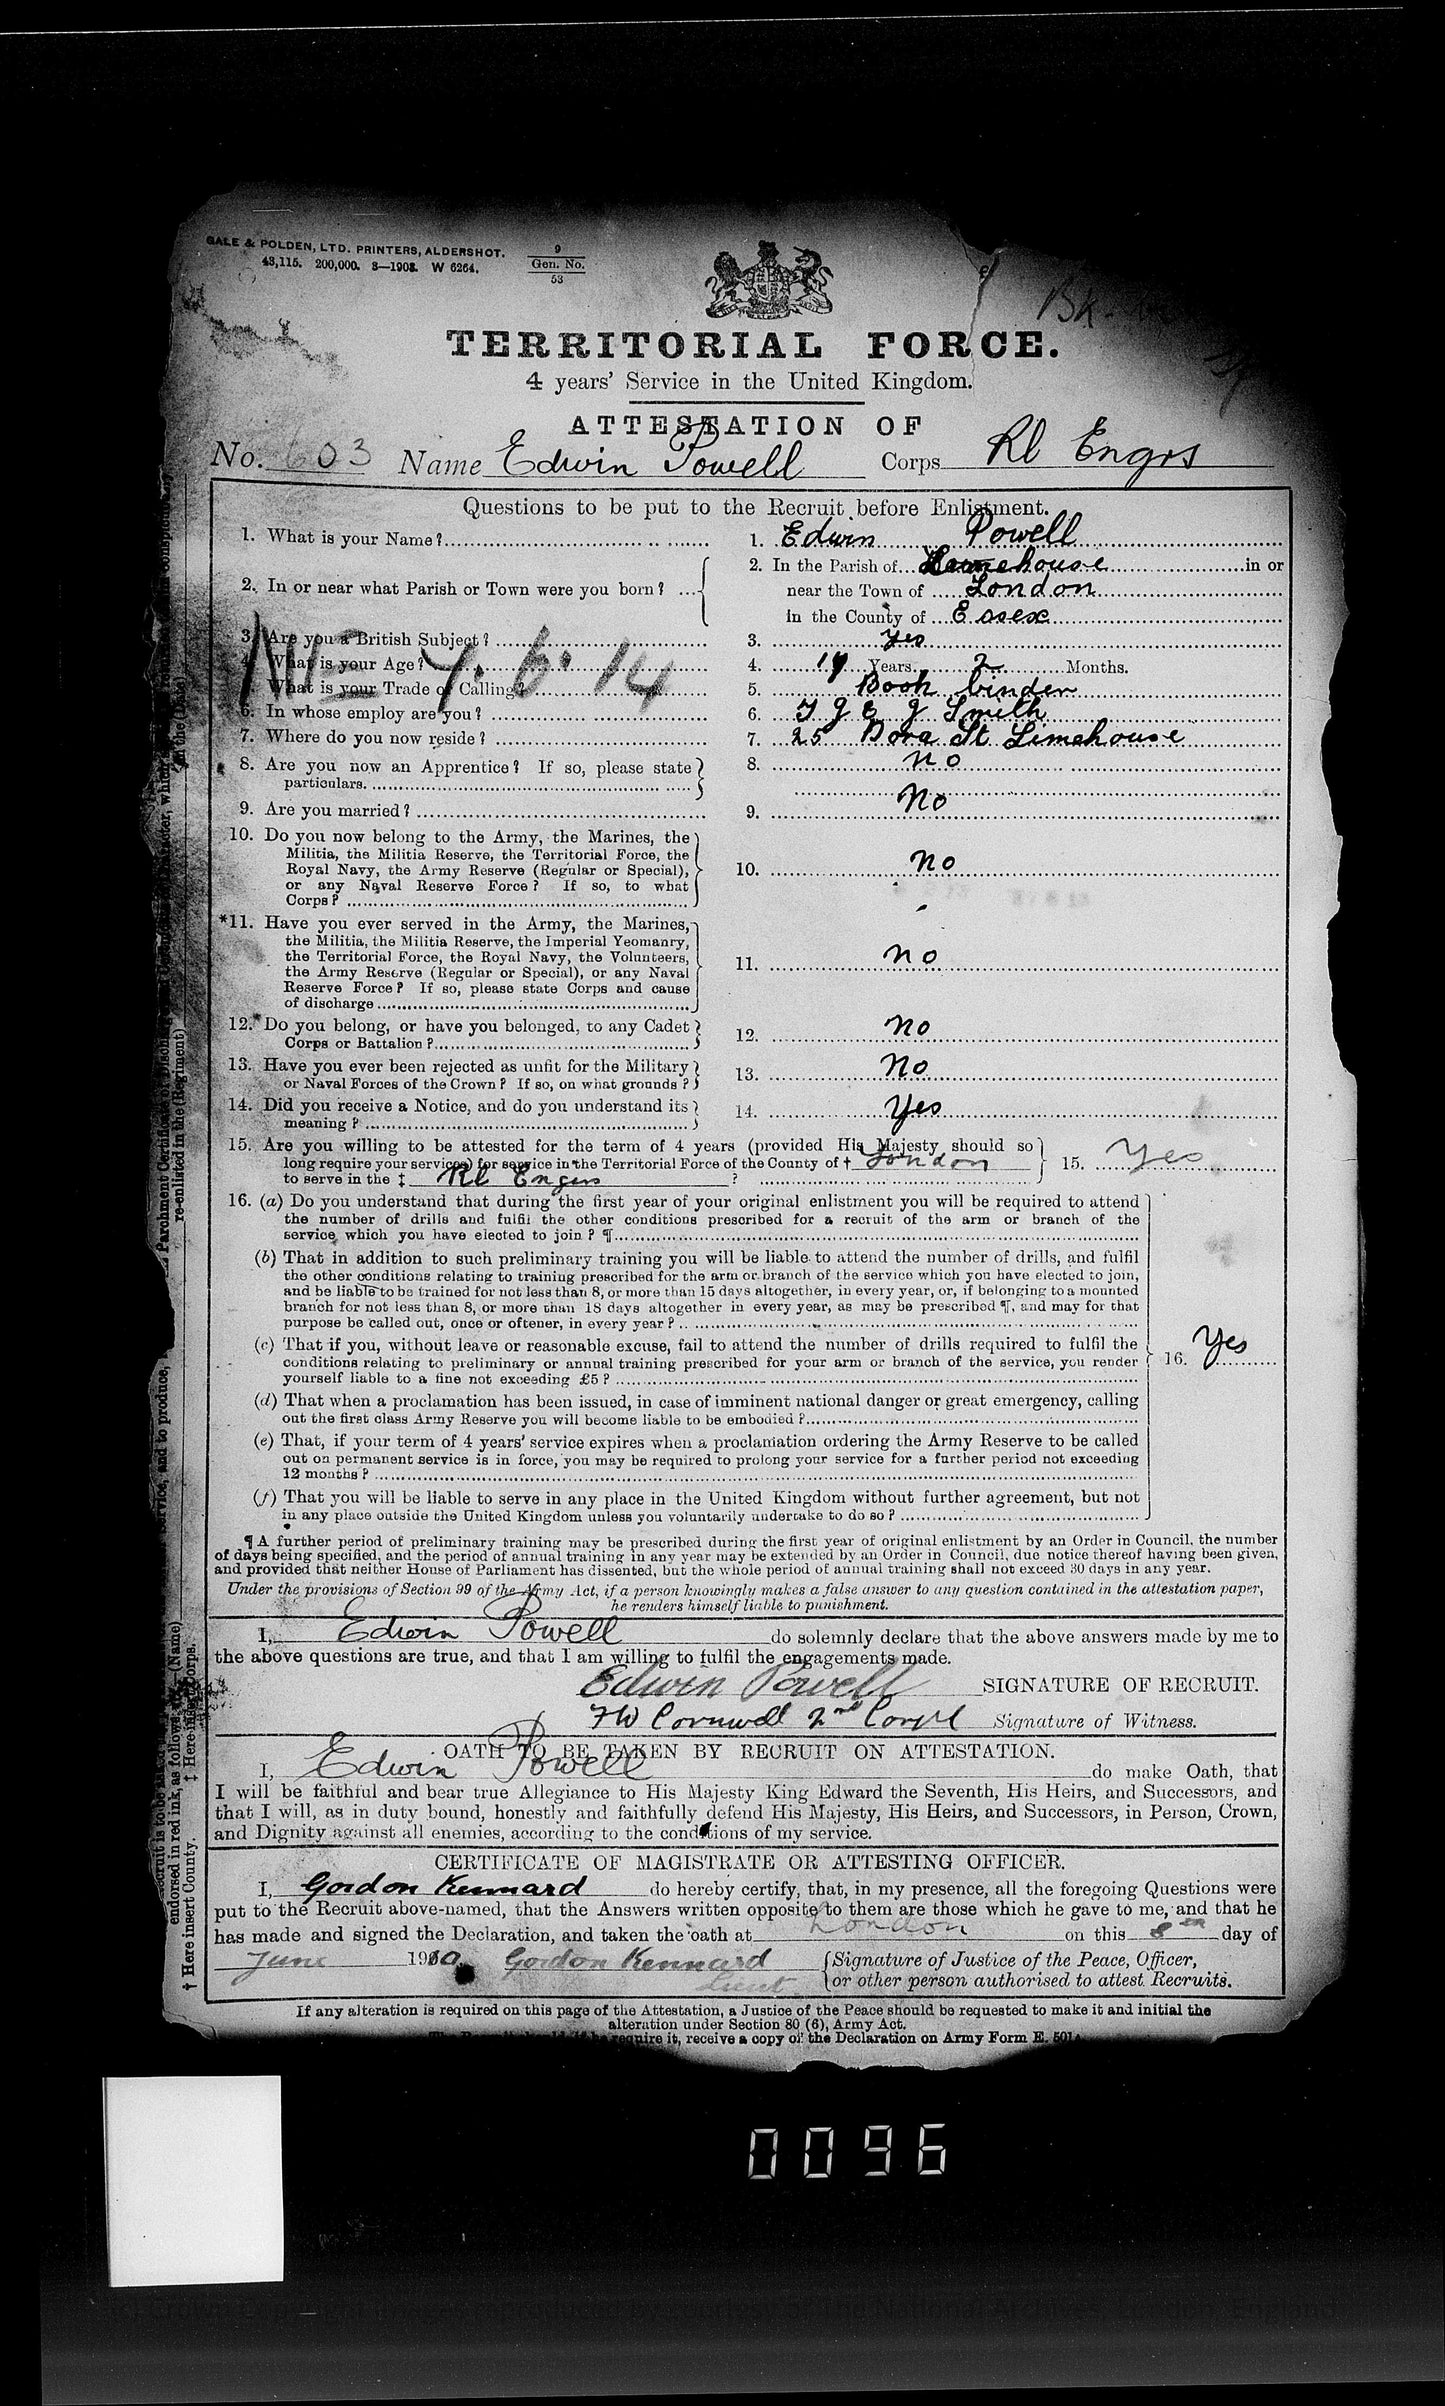 GALE & POLDEN, LTD. PRINTERS, ALDERSHOT.
43,115. 200,000. 8—1908. W 6264.
9
Gen. No.
53
Bk.
TERRITORIAL FORCE.
4 years' Service in the United Kingdom.
ATTESTATION OF
No. 603 Name Edwin Powell Corps Rl Engrs
Questions to be put to the Recruit before Enlistment.
1. What is your Name? 1. Edwin Powell
2. In or near what Parish or Town were you born? 2. In the Parish of Limehouse in or
near the Town of London
in the County of Essex
3. Are you a British Subject? 3. Yes
4. What is your Age? 4. 19 Years 2 Months.
What is your Trade or Calling? 5. Book binder
7.6.14
6. In whose employ are you? 6. T G & J Smith
7. Where do you now reside? 7. 25 Dora St Limehouse
8. Are you now an Apprentice? If so, please state 8. No
particulars.
9. Are you married? 9. No
10. Do you now belong to the Army, the Marines, the
Militia, the Militia Reserve, the Territorial Force, the
Royal Navy, the Army Reserve (Regular or Special), 10. No
or any Naval Reserve Force? If so, to what
Corps?
*11. Have you ever served in the Army, the Marines,
the Militia, the Militia Reserve, the Imperial Yeomanry,
the Territorial Force, the Royal Navy, the Volunteers, 11. No
the Army Reserve (Regular or Special), or any Naval
Reserve Force? If so, please state Corps and cause
of discharge
12.* Do you belong, or have you belonged, to any Cadet 12. No
Corps or Battalion?
13. Have you ever been rejected as unfit for the Military 13. No
or Naval Forces of the Crown? If so, on what grounds?
14. Did you receive a Notice, and do you understand its 14. Yes
meaning?
15. Are you willing to be attested for the term of 4 years (provided His Majesty should so
long require your services) for service in the Territorial Force of the County of † London 15. Yes
to serve in the ‡ Rl Engrs ?
16. (a) Do you understand that during the first year of your original enlistment you will be required to attend
the number of drills and fulfil the other conditions prescribed for a recruit of the arm or branch of the
service which you have elected to join? ¶
(b) That in addition to such preliminary training you will be liable to attend the number of drills, and fulfil
the other conditions relating to training prescribed for the arm or branch of the service which you have elected to join,
and be liable to be trained for not less than 8, or more than 15 days altogether, in every year, or, if belonging to a mounted
branch for not less than 8, or more than 18 days altogether in every year, as may be prescribed ¶, and may for that
purpose be called out, once or oftener, in every year?
(c) That if you, without leave or reasonable excuse, fail to attend the number of drills required to fulfil the
conditions relating to preliminary or annual training prescribed for your arm or branch of the service, you render 16. Yes
yourself liable to a fine not exceeding £5?
(d) That when a proclamation has been issued, in case of imminent national danger or great emergency, calling
out the first class Army Reserve you will become liable to be embodied?
(e) That, if your term of 4 years' service expires when a proclamation ordering the Army Reserve to be called
out on permanent service is in force, you may be required to prolong your service for a further period not exceeding
12 months?
(f) That you will be liable to serve in any place in the United Kingdom without further agreement, but not
in any place outside the United Kingdom unless you voluntarily undertake to do so?
¶ A further period of preliminary training may be prescribed during the first year of original enlistment by an Order in Council, the number
of days being specified, and the period of annual training in any year may be extended by an Order in Council, due notice thereof having been given,
and provided that neither House of Parliament has dissented, but the whole period of annual training shall not exceed 30 days in any year.
Under the provisions of Section 99 of the Army Act, if a person knowingly makes a false answer to any question contained in the attestation paper,
he renders himself liable to punishment.
I, Edwin Powell do solemnly declare that the above answers made by me to
the above questions are true, and that I am willing to fulfil the engagements made.
Edwin Powell SIGNATURE OF RECRUIT.
F W Cornwell 2nd Corpl Signature of Witness.
OATH TO BE TAKEN BY RECRUIT ON ATTESTATION.
I, Edwin Powell do make Oath, that
I will be faithful and bear true Allegiance to His Majesty King Edward the Seventh, His Heirs, and Successors, and
that I will, as in duty bound, honestly and faithfully defend His Majesty, His Heirs, and Successors, in Person, Crown,
and Dignity against all enemies, according to the conditions of my service.
CERTIFICATE OF MAGISTRATE OR ATTESTING OFFICER.
I, Gordon Kennard do hereby certify, that, in my presence, all the foregoing Questions were
put to the Recruit above-named, that the Answers written opposite to them are those which he gave to me, and that he
has made and signed the Declaration, and taken the oath at London on this 8th day of
June 1910. Gordon Kennard Signature of Justice of the Peace, Officer,
Lieut or other person authorised to attest Recruits.
If any alteration is required on this page of the Attestation, a Justice of the Peace should be requested to make it and initial the
alteration under Section 80 (6), Army Act.
require it, receive a copy of the Declaration on Army Form E. 501
endorsed in red ink, as follows, (Name) re-enlisted in the (Regiment)
† Here insert County. ‡ Here insert Corps.
0096